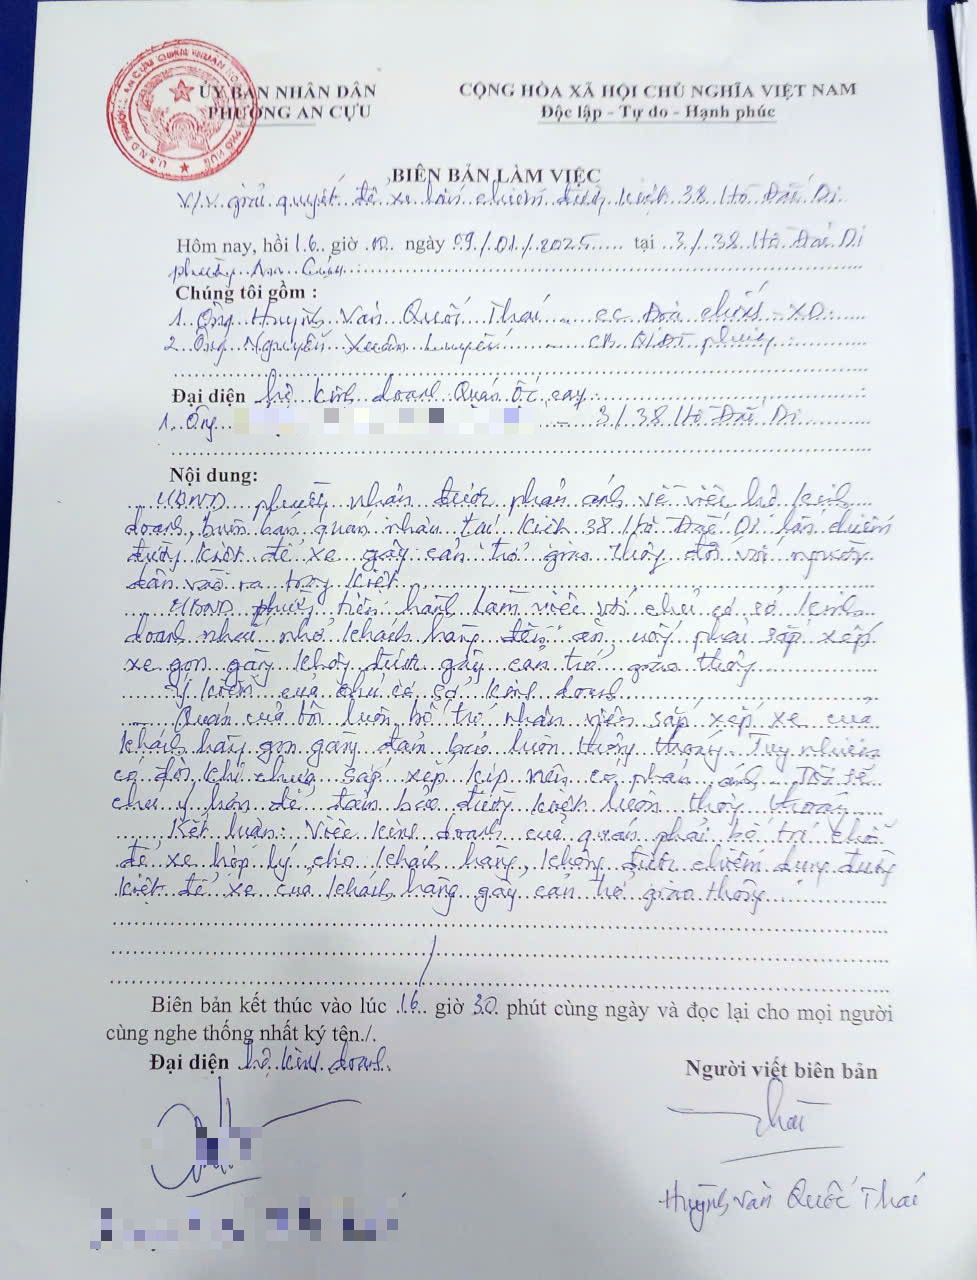 ỦY BAN NHÂN DÂN
PHƯỜNG AN CỰU
CỘNG HÒA XÃ HỘI CHỦ NGHĨA VIỆT NAM
Độc lập - Tự do - Hạnh phúc
BIÊN BẢN LÀM VIỆC
V/v giải quyết để xe lấn chiếm đường kiệt 38 Hồ Đắc Di
Hôm nay, hồi 16 giờ 00 ngày 09/01/2025 tại 3/38 Hồ Đắc Di
phường An Cựu
Chúng tôi gồm :
1. Ông Huỳnh Văn Quốc Thái - CC Địa chính - XD
2. Ông Nguyễn Xuân - CB QLĐT phường
Đại diện hộ kinh doanh Quán Ốc cay :
1. Ông - 3/38 Hồ Đắc Di
Nội dung:
UBND phường nhận được phản ánh về việc hộ kinh
doanh, buôn bán quán nhậu tại kiệt 38 Hồ Đắc Di lấn chiếm
đường kiệt để xe gây cản trở giao thông đối với người
dân vào ra trong kiệt
UBND phường tiến hành làm việc với chủ cơ sở kinh
doanh nhắc nhở khách hàng đến ăn uống phải sắp xếp
xe gọn gàng không được gây cản trở giao thông
Ý kiến của chủ cơ sở kinh doanh
- Quán của tôi luôn bố trí nhân viên sắp xếp xe của
khách hàng gọn gàng đảm bảo luôn thông thoáng. Tuy nhiên
có đôi khi chưa sắp xếp kịp nên có phản ánh. Tôi sẽ
chú ý hơn để đảm bảo đường kiệt luôn thông thoáng
Kết luận: Việc kinh doanh của quán phải bố trí chỗ
để xe hợp lý cho khách hàng, không được chiếm dụng đường
kiệt để xe của khách hàng gây cản trở giao thông
Biên bản kết thúc vào lúc 16 giờ 30 phút cùng ngày và đọc lại cho mọi người
cùng nghe thống nhất ký tên./.
Đại diện hộ kinh doanh
Người viết biên bản
Thái
Huỳnh Văn Quốc Thái